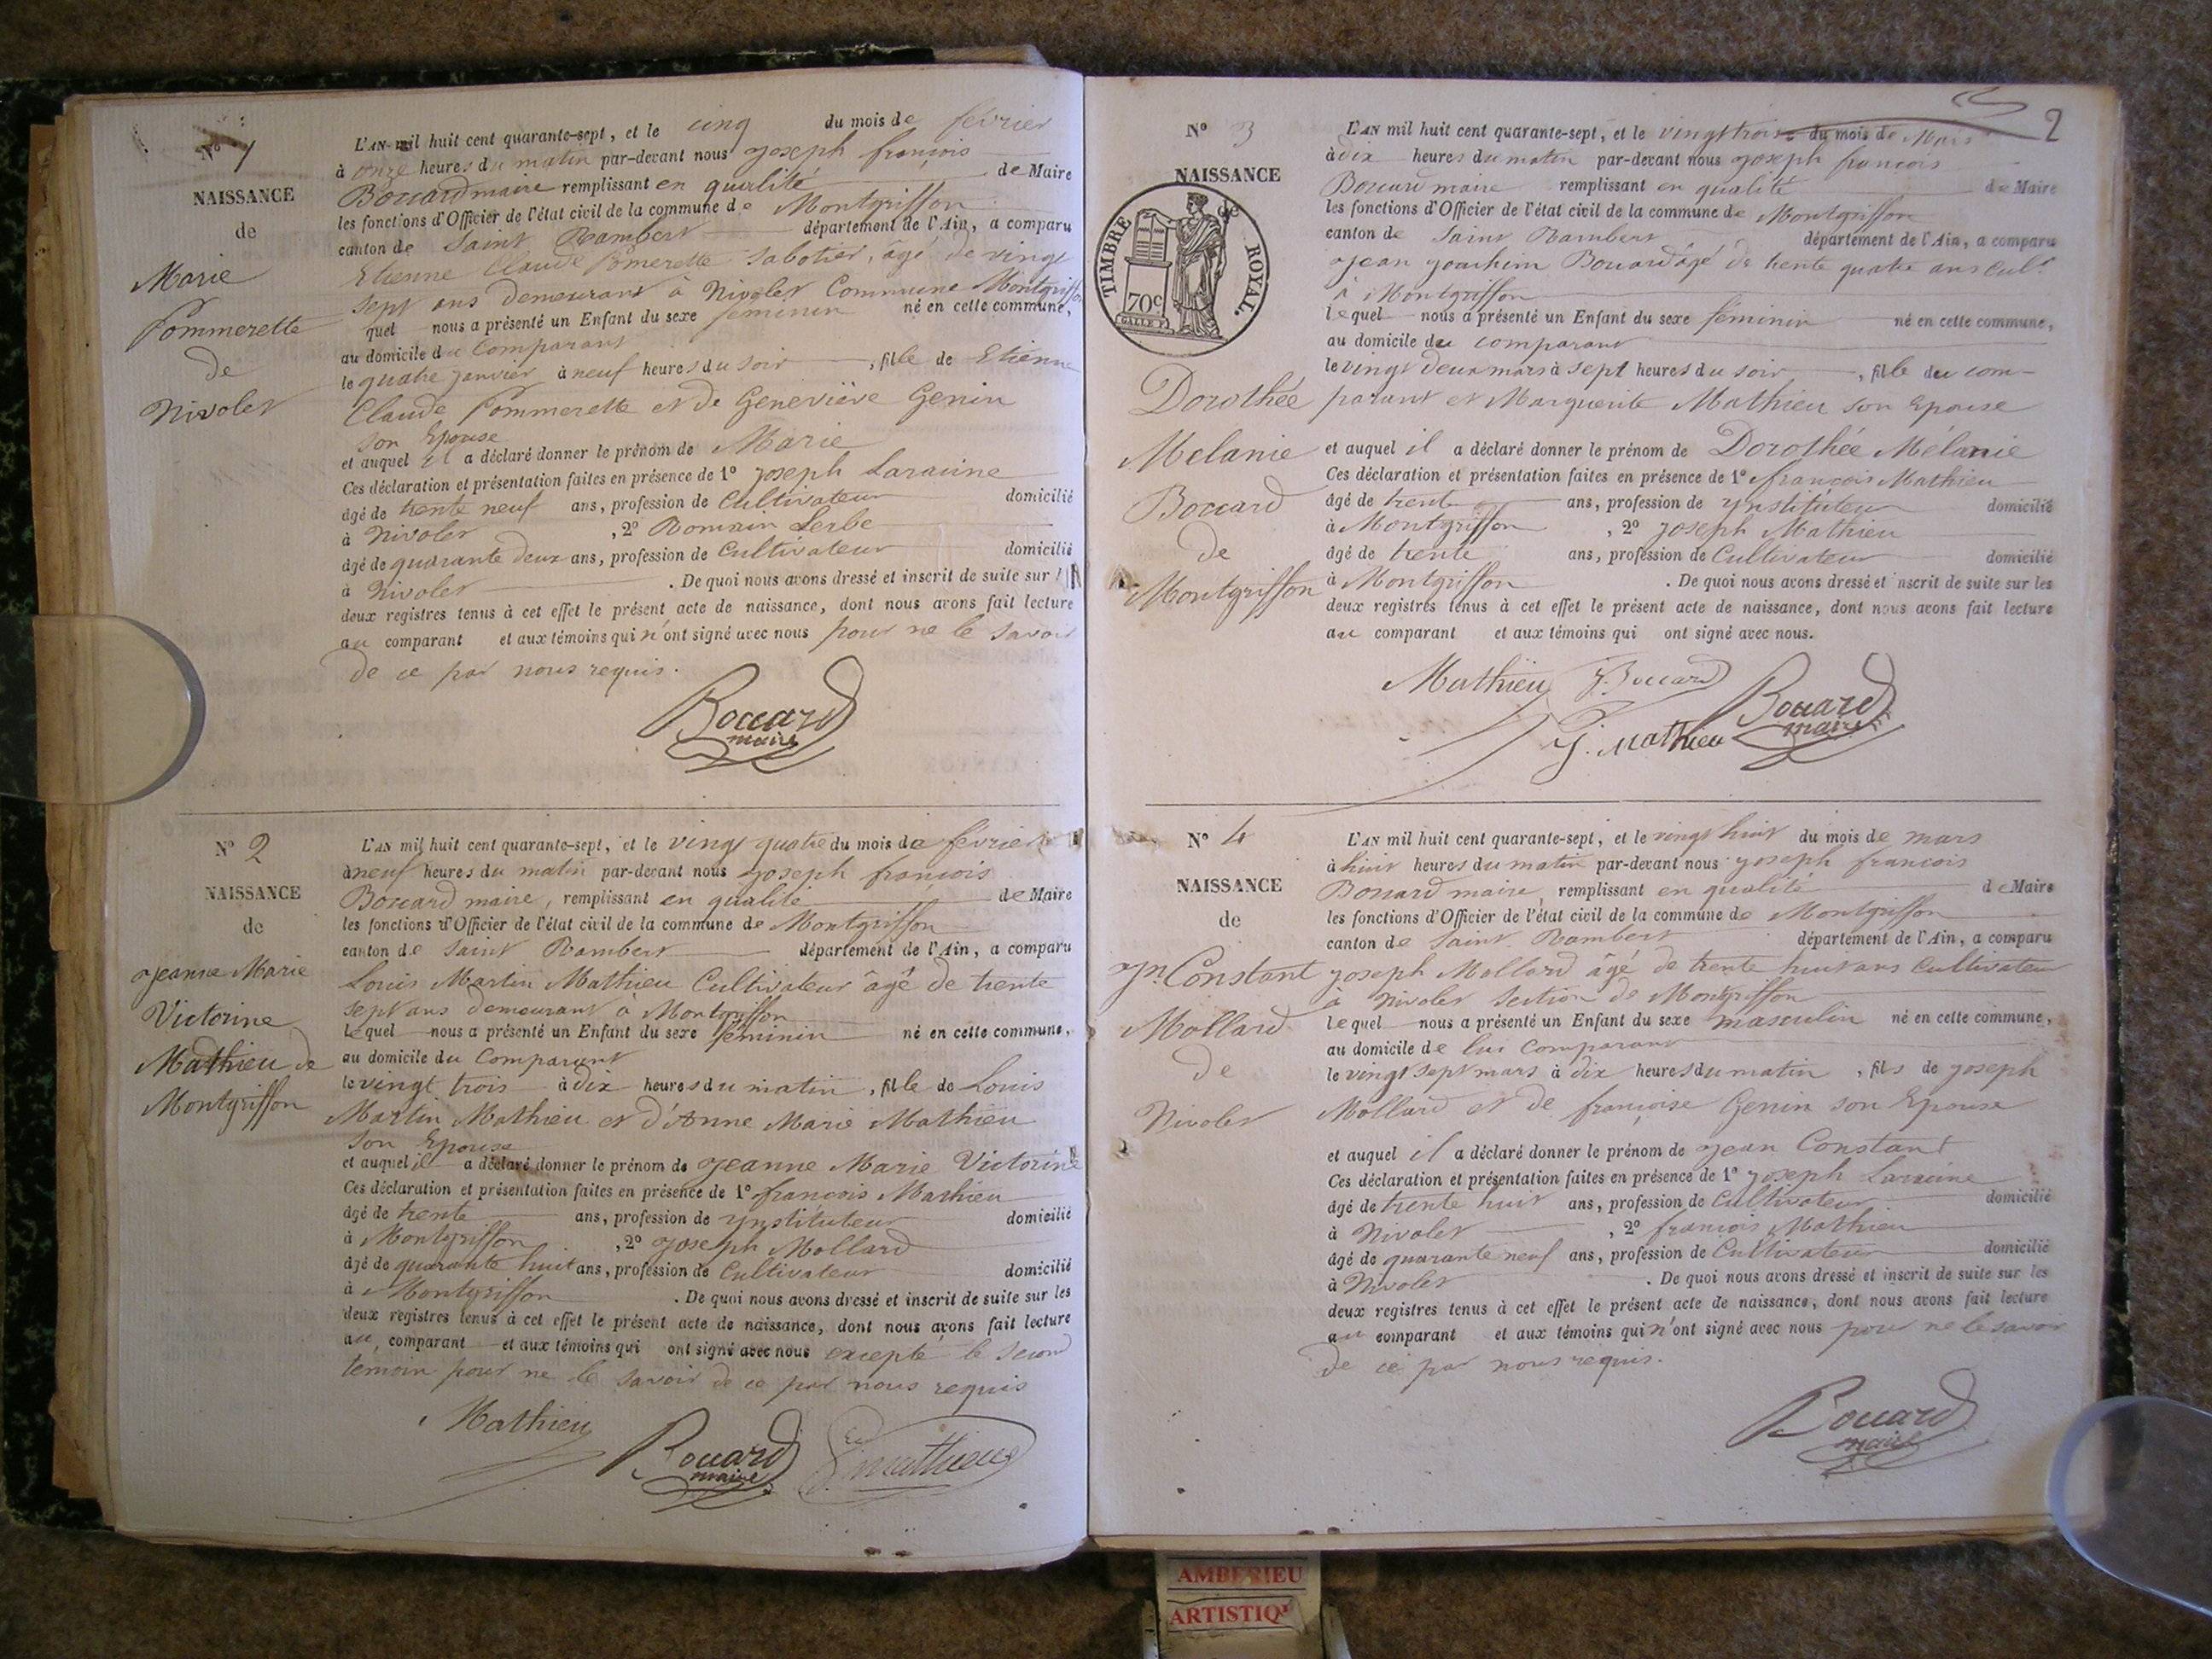 N° 1
NAISSANCE
de
Marie
Pommerette
de
Nivolet
L'AN mil huit cent quarante-sept, et le cinq du mois de février
à onze heures du matin par-devant nous joseph françois
Boccard maire remplissant en qualité de Maire
les fonctions d'Officier de l'état civil de la commune de Montgriffon
canton de Saint Rambert département de l'Ain, a comparu
Etienne Claude Pomerette Sabotier, âgé de vingt
sept ans demeurant à Nivolet Commune Montgriffon
quel nous a présenté un Enfant du sexe féminin né en cette commune,
au domicile du Comparant
le quatre janvier à neuf heures du soir, fille de Etienne
Claude Pommerette et de Geneviève Genin
son Epouse
et auquel il a déclaré donner le prénom de Marie
Ces déclaration et présentation faites en présence de 1° joseph Laracine
âgé de trente neuf ans, profession de Cultivateur domicilié
à Nivolet, 2° Romain Lerbe
âgé de quarante deux ans, profession de Cultivateur domicilié
à Nivolet. De quoi nous avons dressé et inscrit de suite sur
deux registres tenus à cet effet le présent acte de naissance, dont nous avons fait lecture
au comparant et aux témoins qui n'ont signé avec nous pour ne le savoir
de ce par nous requis.
Boccard
maire
N° 2
NAISSANCE
de
jeanne Marie
Victorine
Mathieu de
Montgriffon
L'AN mil huit cent quarante-sept, et le vingt quatre du mois de février
à neuf heures du matin par-devant nous joseph françois
Boccard maire, remplissant en qualité de Maire
les fonctions d'Officier de l'état civil de la commune de Montgriffon
canton de Saint Rambert département de l'Ain, a comparu
Louis Martin Mathieu Cultivateur âgé de trente
sept ans demeurant à Montgriffon
lequel nous a présenté un Enfant du sexe féminin né en cette commune,
au domicile du Comparant
le vingt trois à dix heures du matin, fille de Louis
Martin Mathieu et d'Anne Marie Mathieu
son Epouse
et auquel il a déclaré donner le prénom de jeanne Marie Victorine
Ces déclaration et présentation faites en présence de 1° françois Mathieu
âgé de trente ans, profession de ynstituteur domicilié
à Montgriffon, 2° joseph Mollard
âgé de quarante huit ans, profession de Cultivateur domicilié
à Montgriffon. De quoi nous avons dressé et inscrit de suite sur les
deux registres tenus à cet effet le présent acte de naissance, dont nous avons fait lecture
au comparant et aux témoins qui ont signé avec nous excepté le second
temoin pour ne le savoir de ce par nous requis
Mathieu
Boccard
maire
mathieu
2
N° 3
NAISSANCE
de
TIMBRE ROYAL.
70c
GALLE F.
Dorothée
Melanie
Boccard
de
Montgriffon
L'AN mil huit cent quarante-sept, et le vingt trois du mois de Mars
à dix heures du matin par-devant nous joseph françois
Boccard maire remplissant en qualité de Maire
les fonctions d'Officier de l'état civil de la commune de Montgriffon
canton de Saint Rambert département de l'Ain, a comparu
jean joachim Boccard âgé de trente quatre ans Cult.
à Montgriffon
lequel nous a présenté un Enfant du sexe féminin né en cette commune,
au domicile du comparant
le vingt deux mars à sept heures du soir, fille du com-
parant et Marguerite Mathieu son Epouse
et auquel il a déclaré donner le prénom de Dorothée Mélanie
Ces déclaration et présentation faites en présence de 1° françois Mathieu
âgé de trente ans, profession de ynstituteur domicilié
à Montgriffon, 2° joseph Mathieu
âgé de trente ans, profession de Cultivateur domicilié
à Montgriffon. De quoi nous avons dressé et inscrit de suite sur les
deux registres tenus à cet effet le présent acte de naissance, dont nous avons fait lecture
au comparant et aux témoins qui ont signé avec nous.
Mathieu J. Boccard Boccard
J. Mathieu maire
N° 4
NAISSANCE
de
jn. Constant
Mollard
de
Nivolet
L'AN mil huit cent quarante-sept, et le vingt huit du mois de mars
à huit heures du matin par-devant nous joseph françois
Boccard maire, remplissant en qualité de Maire
les fonctions d'Officier de l'état civil de la commune de Montgriffon
canton de Saint Rambert département de l'Ain, a comparu
joseph Mollard âgé de trente huit ans Cultivateur
à Nivolet Section de Montgriffon
lequel nous a présenté un Enfant du sexe masculin né en cette commune,
au domicile de lui Comparant
le vingt sept mars à dix heures du matin, fils de joseph
Mollard et de françoise Genin son Epouse
et auquel il a déclaré donner le prénom de jean Constant
Ces déclaration et présentation faites en présence de 1° joseph Laracine
âgé de trente huit ans, profession de Cultivateur domicilié
à Nivolet, 2° françois Mathieu
âgé de quarante neuf ans, profession de Cultivateur domicilié
à Nivolet. De quoi nous avons dressé et inscrit de suite sur les
deux registres tenus à cet effet le présent acte de naissance, dont nous avons fait lecture
au comparant et aux témoins qui n'ont signé avec nous pour ne le savoir
de ce par nous requis.
Boccard
maire
AMBERIEU
ARTISTIQ